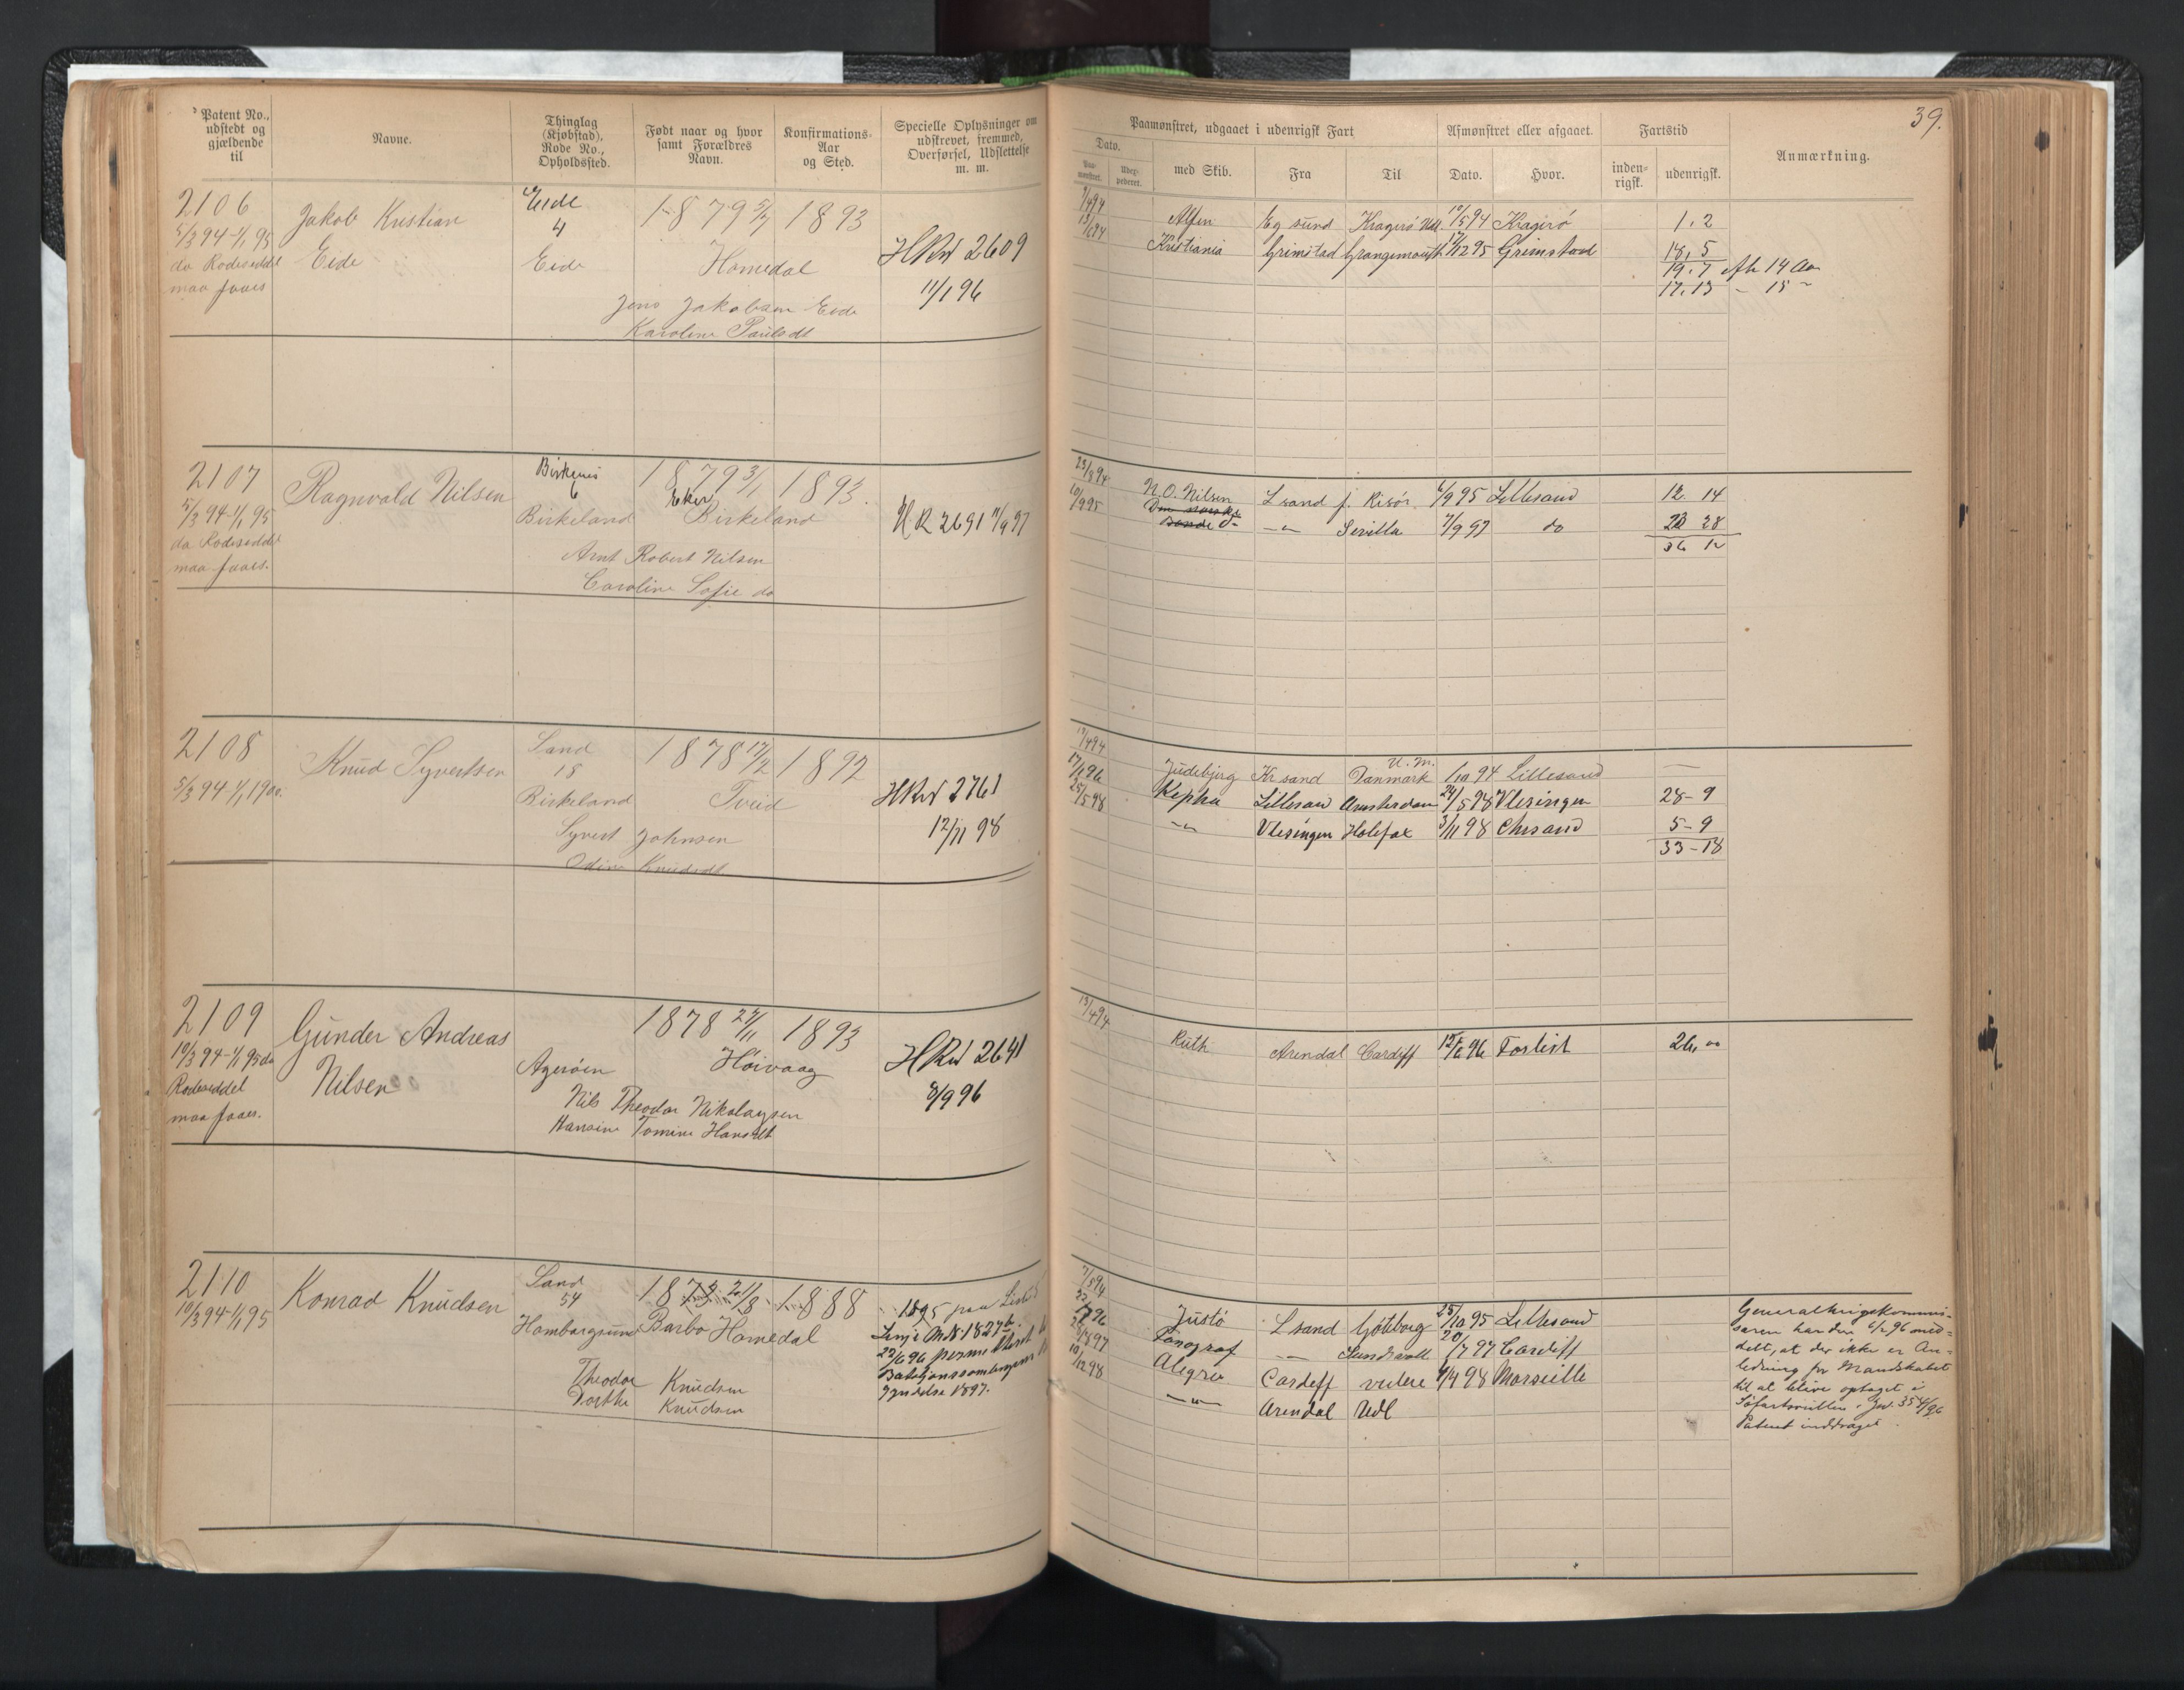 39.
Patent No., udstedt og gjældende til
Navne.
Thinglag (Kjøbstad), Rode No., Opholdssted.
Født naar og hvor samt Forældres Navn.
Konfirmations-Aar og Sted.
Specielle Oplysninger om udskrevet, fremmed, Overførsel, Udslettelse m. m.
Paamønstret, udgaaet i udenrigsk Fart
Dato.
Paamønstret.
Udexpederet.
med Skib.
Fra
Til
Afmønstret eller afgaaet.
Dato.
Hvor.
Fartstid
indenrigsk.
udenrigsk.
Anmærkning.
2106
5/3 94-1/1 95
da Rodeseddel
maa faaes
Jakob Kristian
Eide
Eide
4
Eide
1879 5/7
1893
Homedal
Jens Jakobsen Eide
Karoline Paulsdt
HRW 2609
11/1 96
Alfen Eg sund Kragerö 10/5 94 Kragerö 1.2
Kristiania Grimstad Grangemouth 17/12 95 Grimstad 18,5
19.7 Afh 14 Aar
17.13 - 15 -
2107
5/3 94-1/1 95
da Rodeseddel
maa faaes.
Ragnvald Nilsen
Birkenes
6
Birkeland
1879 3/1
1893.
Eker
Birkeland
Arnt Robert Nilsen
Caroline Sofie do
HR 2691 7/9 97
23/8 94
10/9 95
N. O. Nilsen L sand f. Risör 6/9 95 Lillesand 12. 14
-"- Sevilla 7/9 97 do 23 28
36 12
2108
5/3 94-1/1 1900.
Knud Syvertsen
Sand
18
Birkeland
1878 17/2
1892
Tveid
Syvert Johnsen
Odine Knudsdt
HRW 2761
12/11 98
17/1 96
25/5 98
Judebjerg Kr sand Danmark 1/10 94 Lillesand —
Kepha Lillesand Amsterdam 24/5 98 Vlesingen 28-9
-"- Vlesingen Halefax 3/11 98 Chrsand 5-9
33-18
2109
10/3 94-1/1 95 da
Rodeseddel
maa faaes.
Gunder Andreas
Nilsen
Agerøen
1878 27/11
1893
Høivaag
Nils Theodor Nikolaysen
Hansine Tomine Hansdt
HRW 2641
8/9 96
13/4 94
Ruth Arendal Cardiff 12/6 96 Forlist 26,00
2110
10/3 94-1/1 95
Konrad Knudsen
Sand
54
Homborgsund
1873 21/8
1888
Barbo Homedal
Theodor Knudsen
Dorthe Knudsen
1895 paa
Linje M.N. 1827
22/6 96
1897.
7/5 94
Justö L sand Göteborg 25/10 95 Lillesand
Fonograf -"- Sundsvall 20/7 97 Cardiff
Alegro Cardiff videre 4/4 98 Marseille
-"- Arendal Udl
Generalkrigskommis-
saren har den 6/2 96 med-
delt, at der ikke er An-
ledning for Mandskabet
til at blive optaget i
Söfartsrullen. Jnr. 354/96
Patent inddraget.